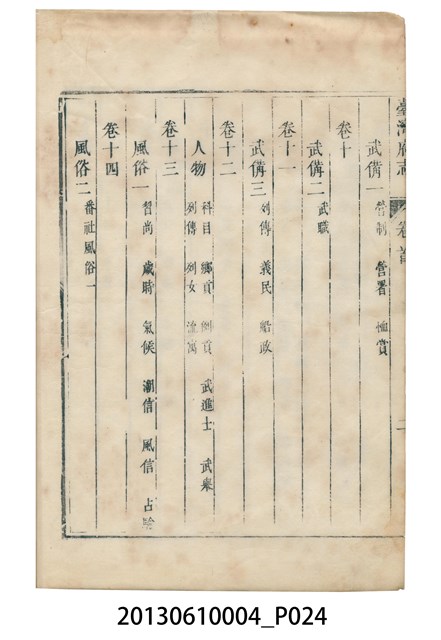 臺灣府志 卷首 二
武備一
營制 營署 恤賞
卷十
武備二
武職
卷十一
武備三
列傳 義民 船政
卷十二
人物
科目 鄉貢 例貢 武進士 武舉
列傳 列女 流寓
卷十三
風俗一
習尚 歲時 氣候 潮信 風信 占驗
卷十四
風俗二
番社風俗一
20130610004_P024